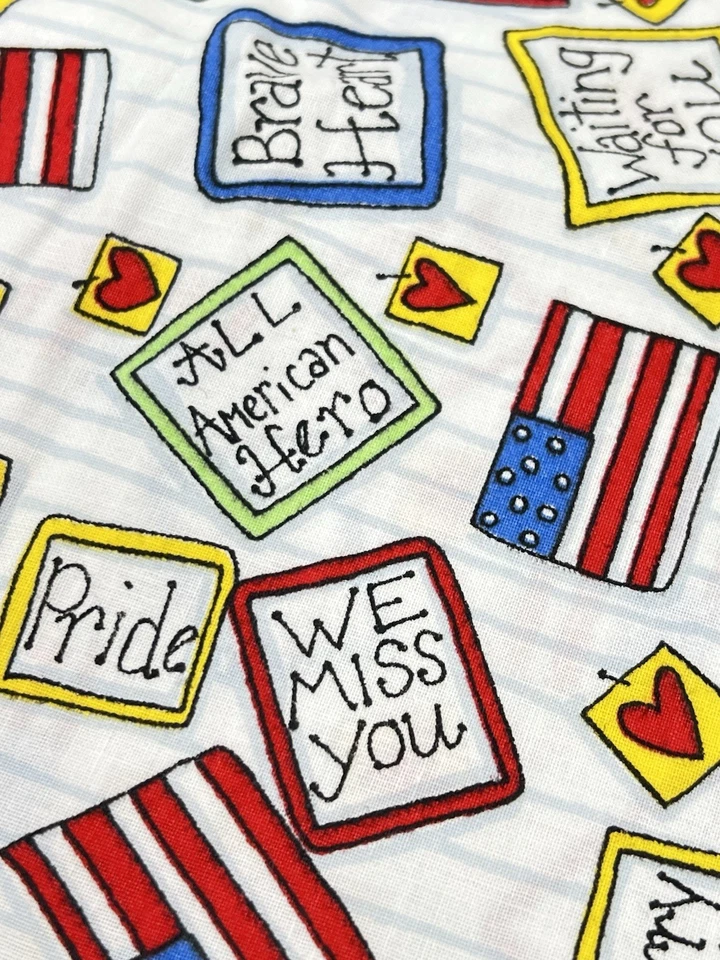 Brave
Heart
Waiting
for
ALL
American
Hero
Pride
WE
MISS
you